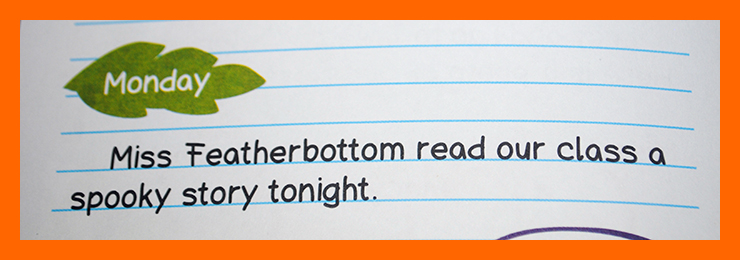 Monday
Miss Featherbottom read our class a
spooky story tonight.